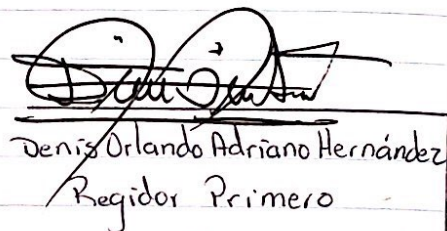 Denis Orlando Adriano Hernández
Regidor Primero